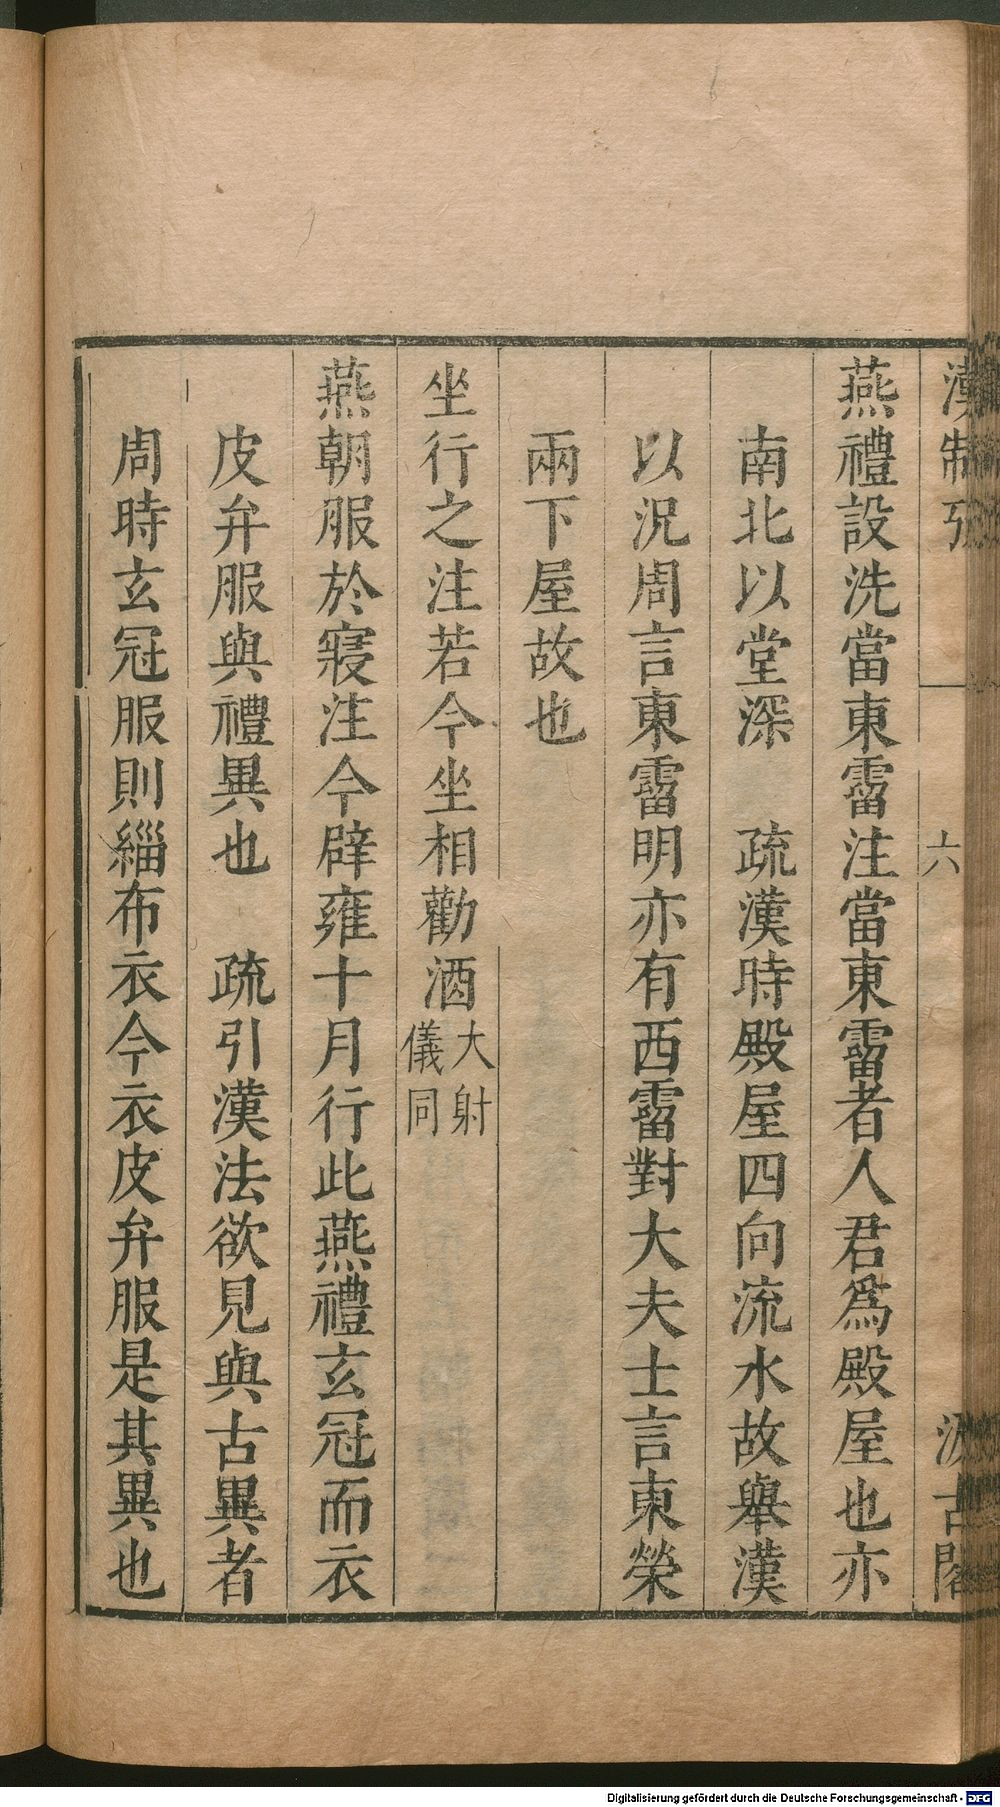 漢制攷
六
汲古閣
燕禮設洗當東霤注當東霤者人君爲殿屋也亦
南北以堂深　疏漢時殿屋四向流水故舉漢
以況周言東霤明亦有西霤對大夫士言東榮
兩下屋故也
坐行之注若今坐相勸酒大射儀同
燕朝服於寢注今辟雍十月行此燕禮玄冠而衣
皮弁服與禮異也　疏引漢法欲見與古異者
周時玄冠服則緇布衣今衣皮弁服是其異也
Digitalisierung gefördert durch die Deutsche Forschungsgemeinschaft - DFG